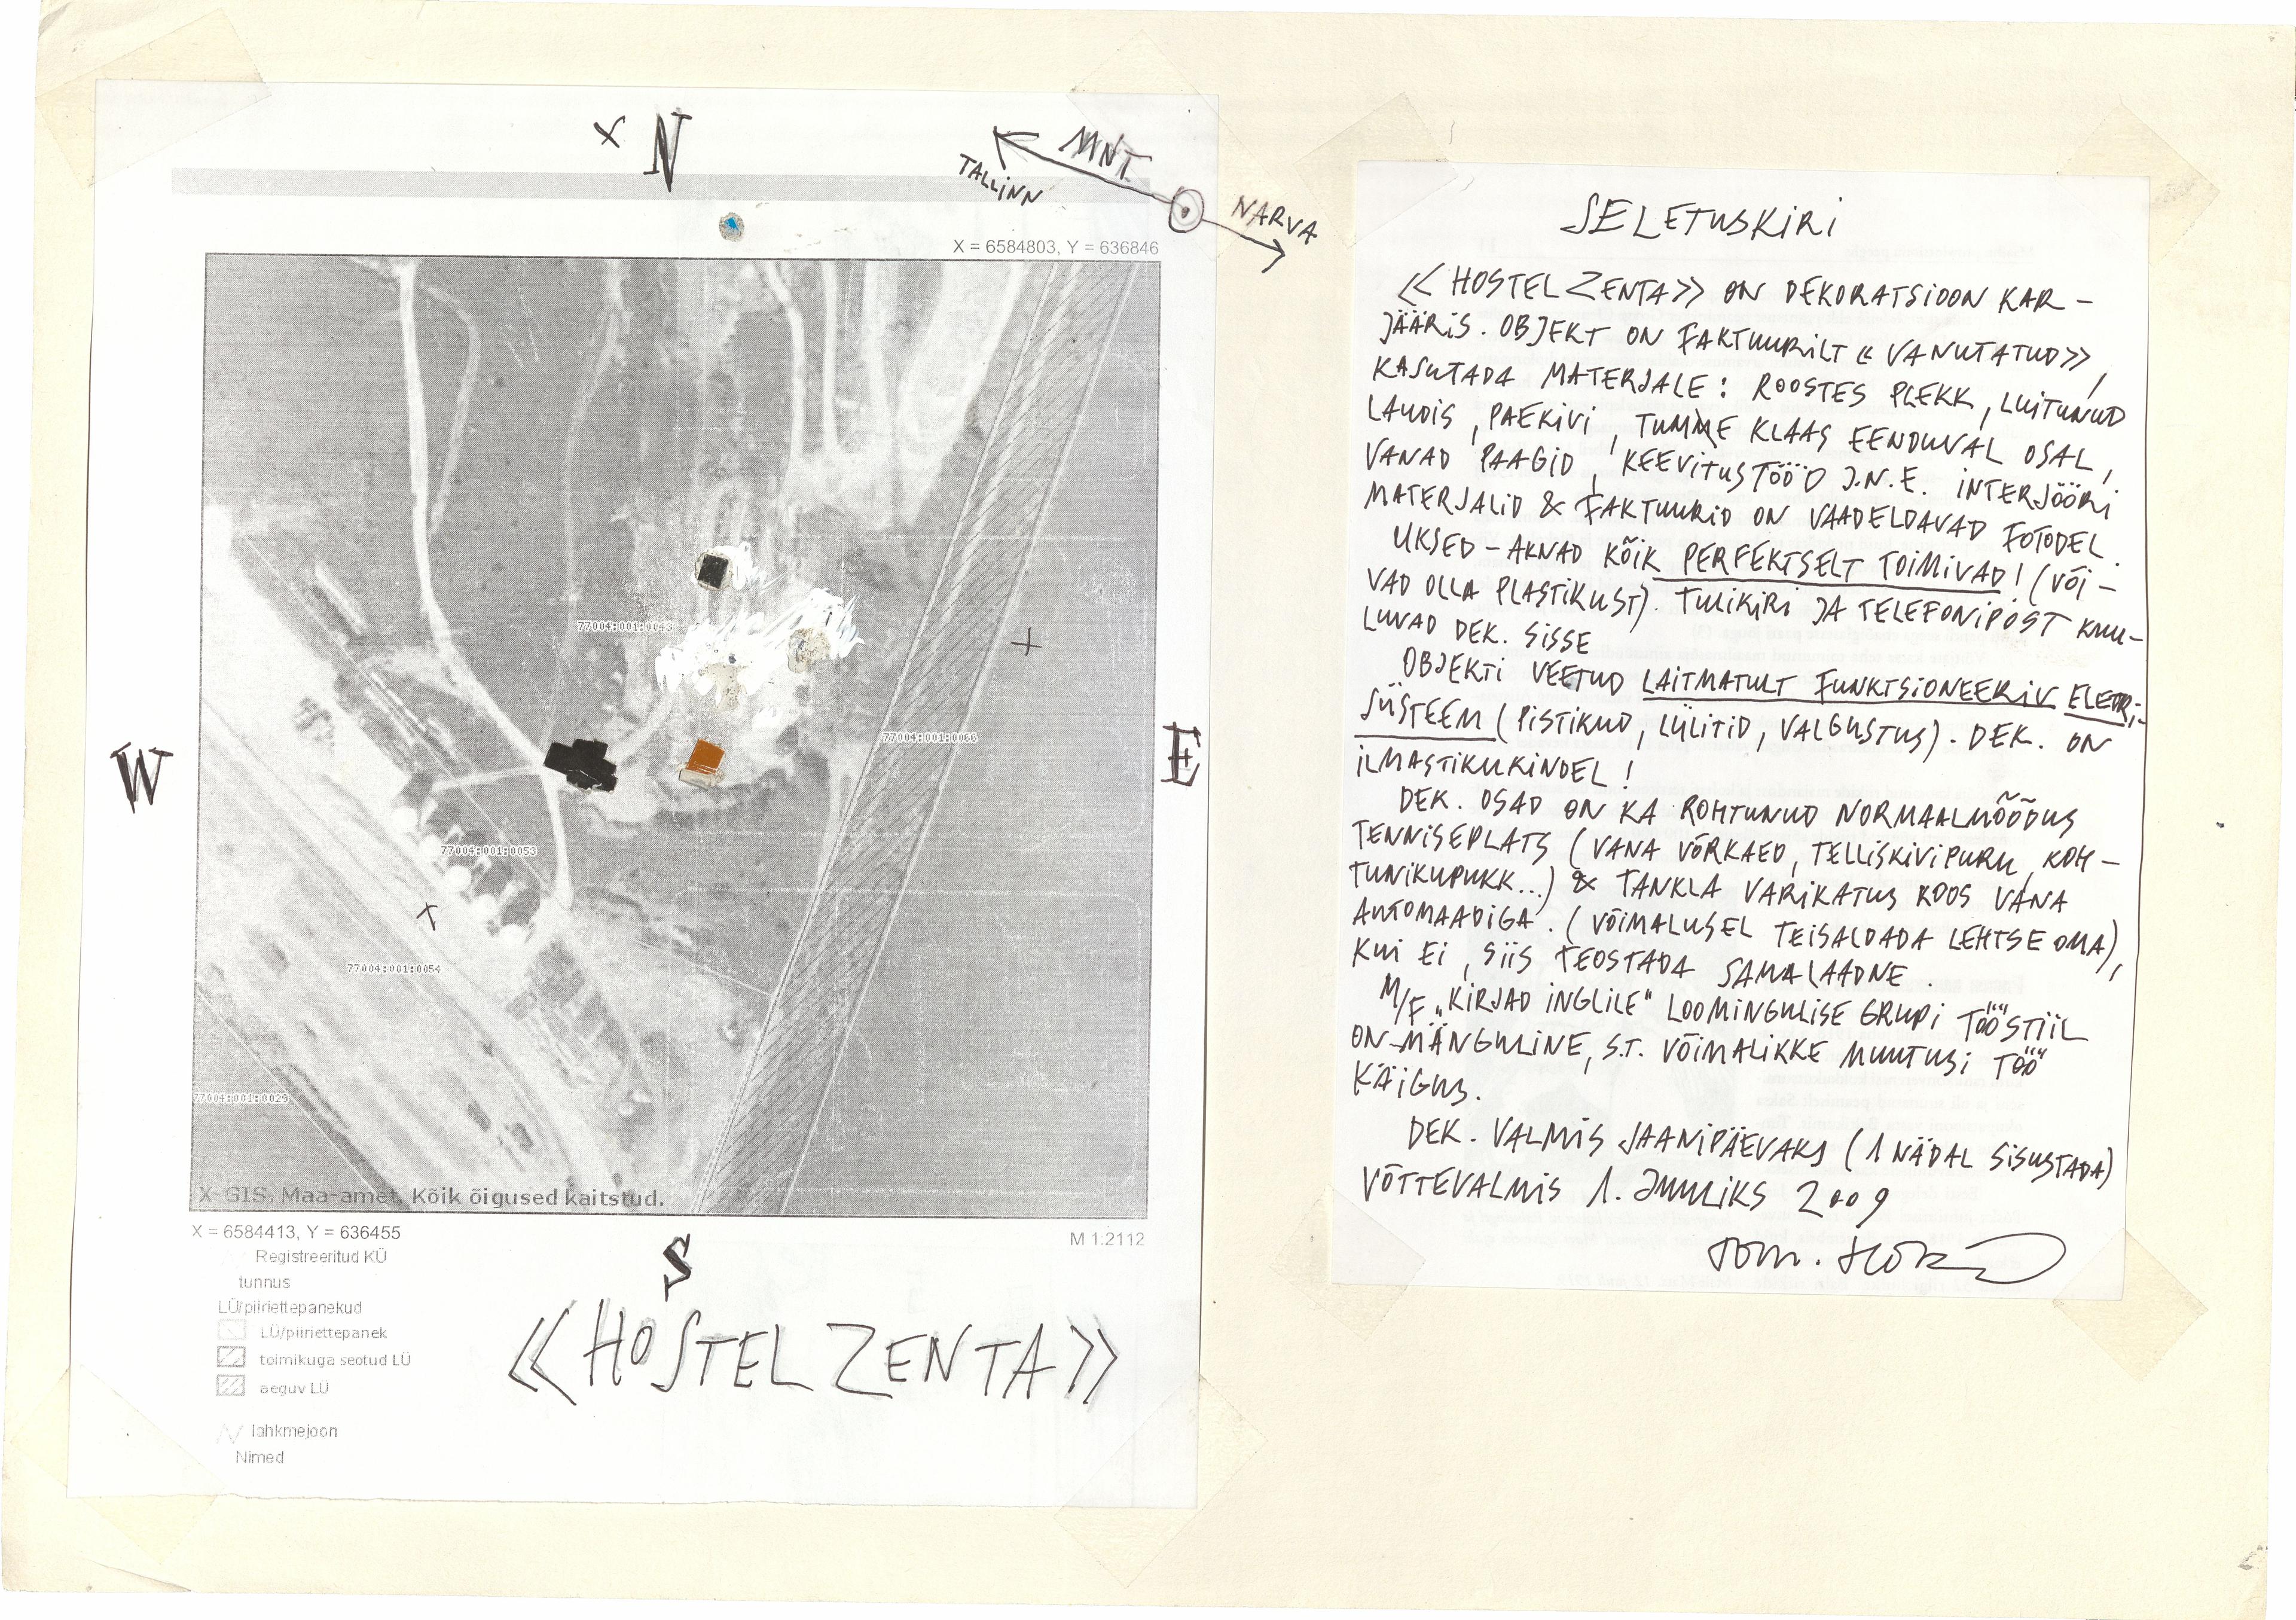 X N
MNT.
TALLINN
NARVA
X = 6584803, Y = 636846
77004:001:0043
77004:001:0066
W
E
77004:001:0053
77004:001:0054
77004:001:0029
X-GIS. Maa-amet. Kõik õigused kaitstud.
X = 6584413, Y = 636455
M 1:2112
Registreeritud KÜ
tunnus
LÜ/piiriettepanekud
LÜ/piiriettepanek
toimikuga seotud LÜ
aeguv LÜ
lahkmejoon
Nimed
S
<< HOSTEL ZENTA >>
SELETUSKIRI
<< HOSTEL ZENTA >> ON DEKORATSIOON KAR-
JÄÄRIS. OBJEKT ON FAKTUURILT << VANUTATUD >>,
KASUTADA MATERJALE: ROOSTES PLEKK, LUITUNUD
LAUDIS, PAEKIVI, TUMME KLAAS EENDUVAL OSAL,
VANAD PAAGID, KEEVITUSTÖÖD J.N.E. INTERJÖÖRI
MATERJALID & FAKTUURID ON VAADELDAVAD FOTODEL.
UKSED-AKNAD KÕIK PERFEKTSELT TOIMIVAD! (VÕI-
VAD OLLA PLASTIKUST). TULIKIRI JA TELEFONIPOST KUU-
LUVAD DEK. SISSE
OBJEKTI VEETUD LAITMATULT FUNKTSIONEERIV ELEKTRI-
SÜSTEEM (PISTIKUD, LÜLITID, VALGUSTUS). DEK. ON
ILMASTIKUKINDEL!
DEK. OSAD ON KA ROHTUNUD NORMAALMÕÕDUS
TENNISEPLATS (VANA VÕRKAED, TELLISKIVIPURU, KOH-
TUNIKUPUKK...) & TANKLA VARIKATUS KOOS VANA
AUTOMAADIGA. (VÕIMALUSEL TEISALDADA LEHTSE OMA),
KUI EI, SIIS TEOSTADA SAMALAADNE.
M/F „KIRJAD INGLILE" LOOMINGULISE GRUPI TÖÖSTIIL
ON MÄNGULINE, S.T. VÕIMALIKKE MUUTUSI TÖÖ
KÄIGUS.
DEK. VALMIS JAANIPÄEVAKS (1 NÄDAL SISUSTADA)
VÕTTEVALMIS 1. JUULIKS 2009